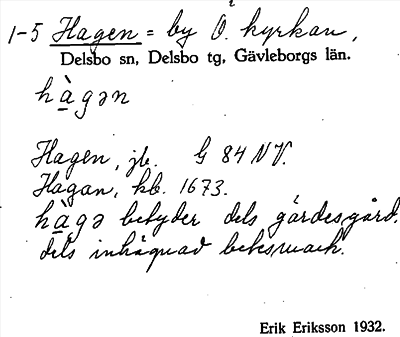 1-5 Hagen = by Ö. kyrkan,
Delsbo sn, Delsbo tg, Gävleborgs län.
hàgən
Hagen, jb. G 84 NV.
Hagan, kb. 1673.
hàgə betyder dels gärdesgård,
dels inhägnad betesmark.
Erik Eriksson 1932.